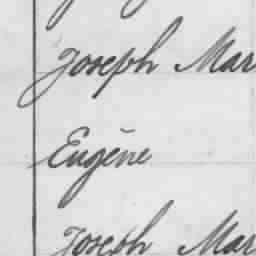 Joseph Mar
Eugène
Joseph Mar